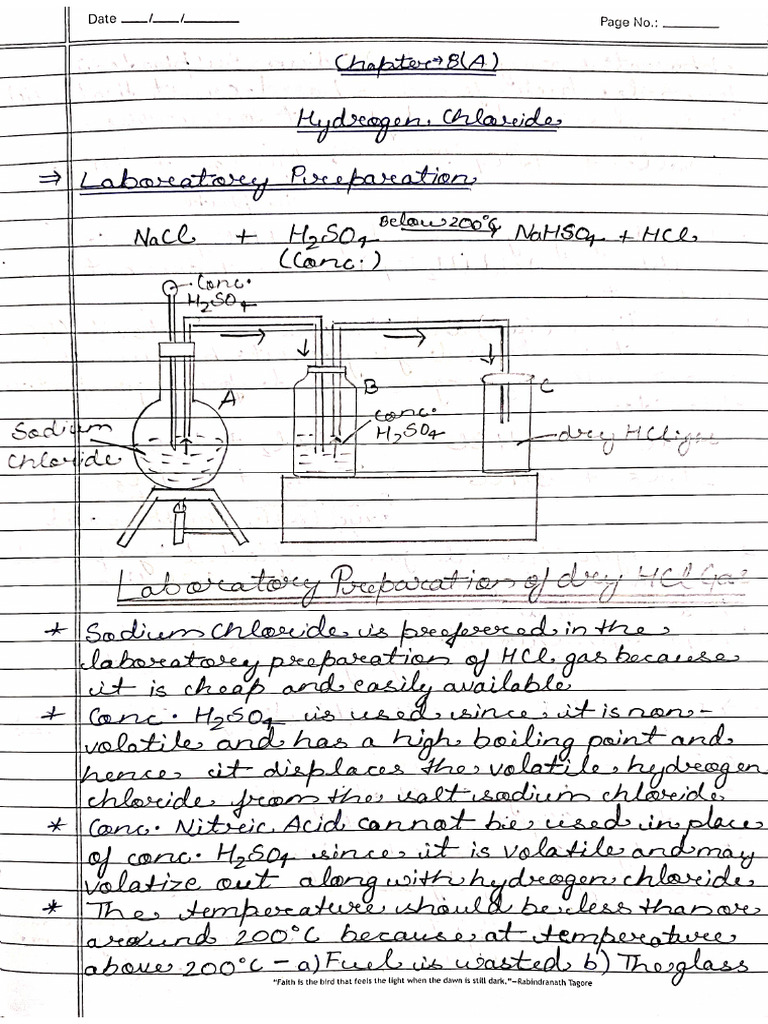 Date ___/___/______
Page No.: ______
Chapter→8(A)
Hydrogen Chloride
⇒ Laboratory Preparation
NaCl + H₂SO₄ Below 200°C NaHSO₄ + HCl
(Conc.)
Conc.
H₂SO₄
A
B
C
conc.
H₂SO₄
Sodium
Chloride
dry HCl gas
Laboratory Preparation of dry HCl Gas
* Sodium Chloride is preferred in the
laboratory preparation of HCl gas because
it is cheap and easily available
* Conc. H₂SO₄ is used since it is non-
volatile and has a high boiling point and
hence it displaces the volatile hydrogen
chloride from the salt sodium chloride
* Conc. Nitric Acid cannot be used in place
of conc. H₂SO₄ since it is volatile and may
volatize out along with hydrogen chloride
* The temperature should be less than or
around 200°C because at temperature
above 200°C - a) Fuel is wasted b) The glass
"Faith is the bird that feels the light when the dawn is still dark."–Rabindranath Tagore